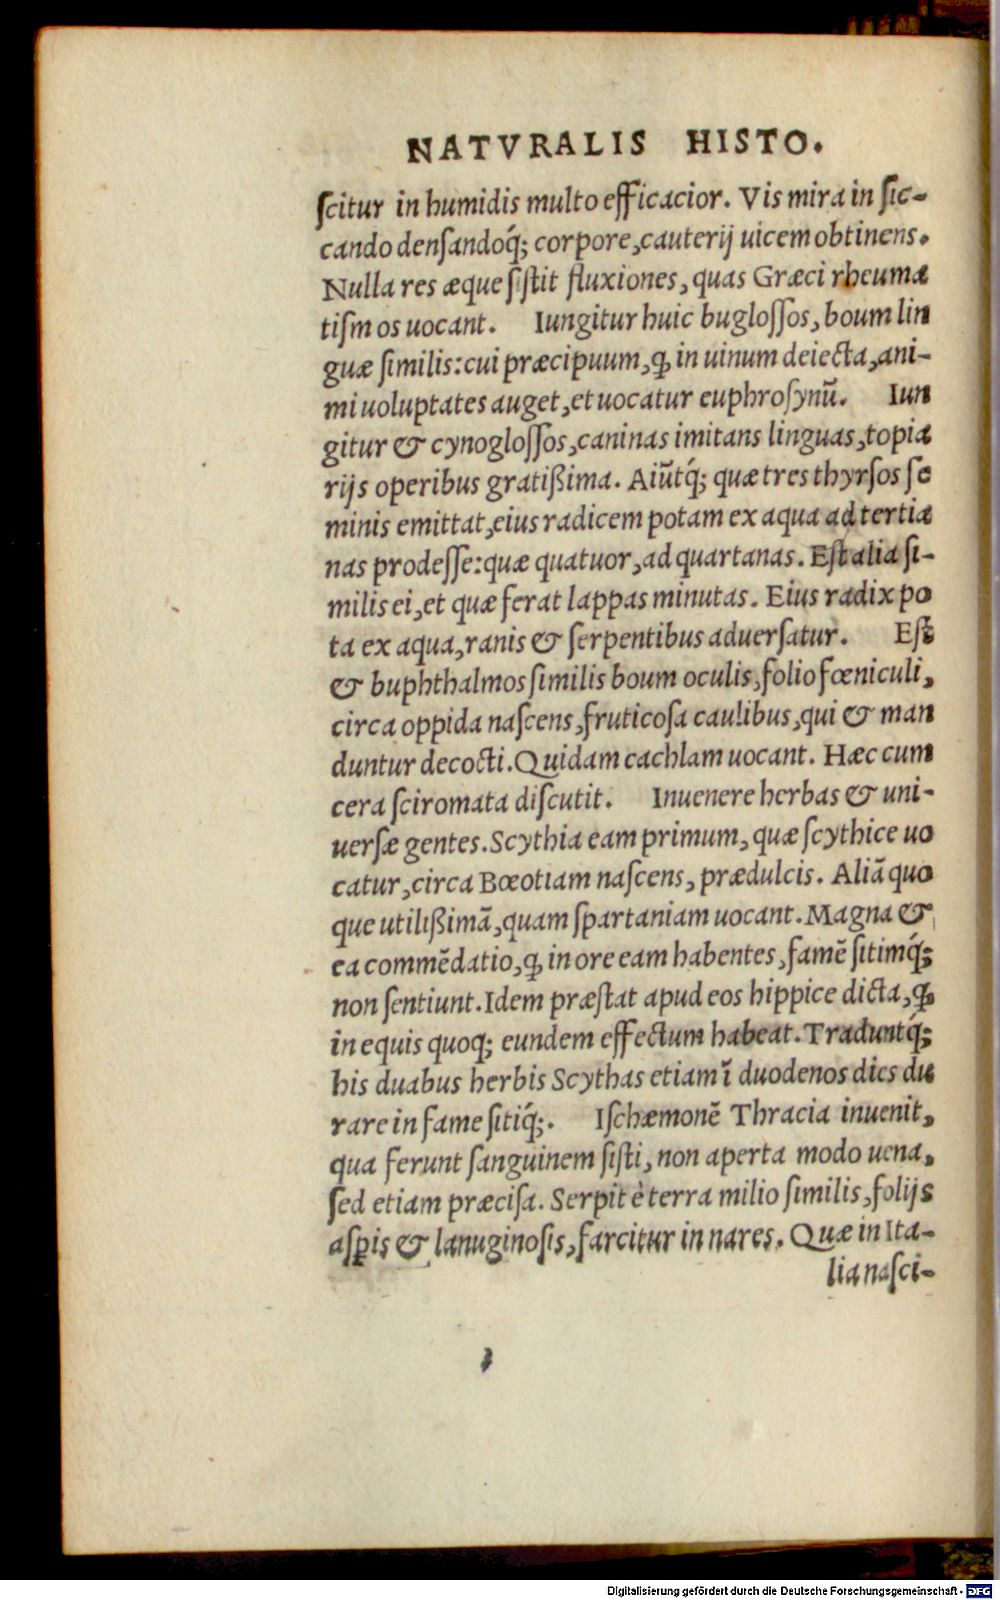 NATVRALIS HISTO.
ſcitur in humidis multo efficacior. Vis mira in ſic-
cando denſandoq́; corpore, cauterij uicem obtinens.
Nulla res æque ſiſtit fluxiones, quas Græci rheumæ
tiſmos uocant. Iungitur huic bugloſſos, boum lin
guæ ſimilis: cui præcipuum, ꝙ in uinum deiecta, ani-
mi uoluptates auget, et uocatur euphroſynū. Iun
gitur & cynogloſſos, caninas imitans linguas, topiæ
rijs operibus gratißima. Aiūtq́; quæ tres thyrſos ſe
minis emittat, eius radicem potam ex aqua ad tertiæ
nas prodeſſe: quæ quatuor, ad quartanas. Eſt alia ſi-
milis ei, et quæ ferat lappas minutas. Eius radix po
ta ex aqua, ranis & ſerpentibus aduerſatur. Eſt
& buphthalmos ſimilis boum oculis, folio fœniculi,
circa oppida naſcens, fruticoſa caulibus, qui & man
duntur decocti. Quidam cachlam uocant. Hæc cum
cera ſciromata diſcutit. Inuenere herbas & uni-
uerſæ gentes. Scythia eam primum, quæ ſcythice uo
catur, circa Bœotiam naſcens, prædulcis. Aliā quo
que utilißimā, quam ſpartaniam uocant. Magna &
ea commēdatio, ꝙ in ore eam habentes, famē ſitimq́;
non ſentiunt. Idem præſtat apud eos hippice dicta, ꝙ
in equis quoq; eundem effectum habeat. Traduntq́;
his duabus herbis Scythas etiam ī duodenos dies du
rare in fame ſitiq́;. Iſchæmonē Thracia inuenit,
qua ferunt ſanguinem ſiſti, non aperta modo uena,
ſed etiam præciſa. Serpit è terra milio ſimilis, folijs
aſꝑis & lanuginoſis, farcitur in nares. Quæ in Ita-
lia naſci-
Digitalisierung gefördert durch die Deutsche Forschungsgemeinschaft - DFG